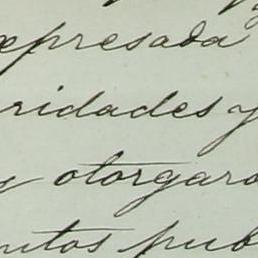 epresada
ridades y
y otorgaro
ntos pub